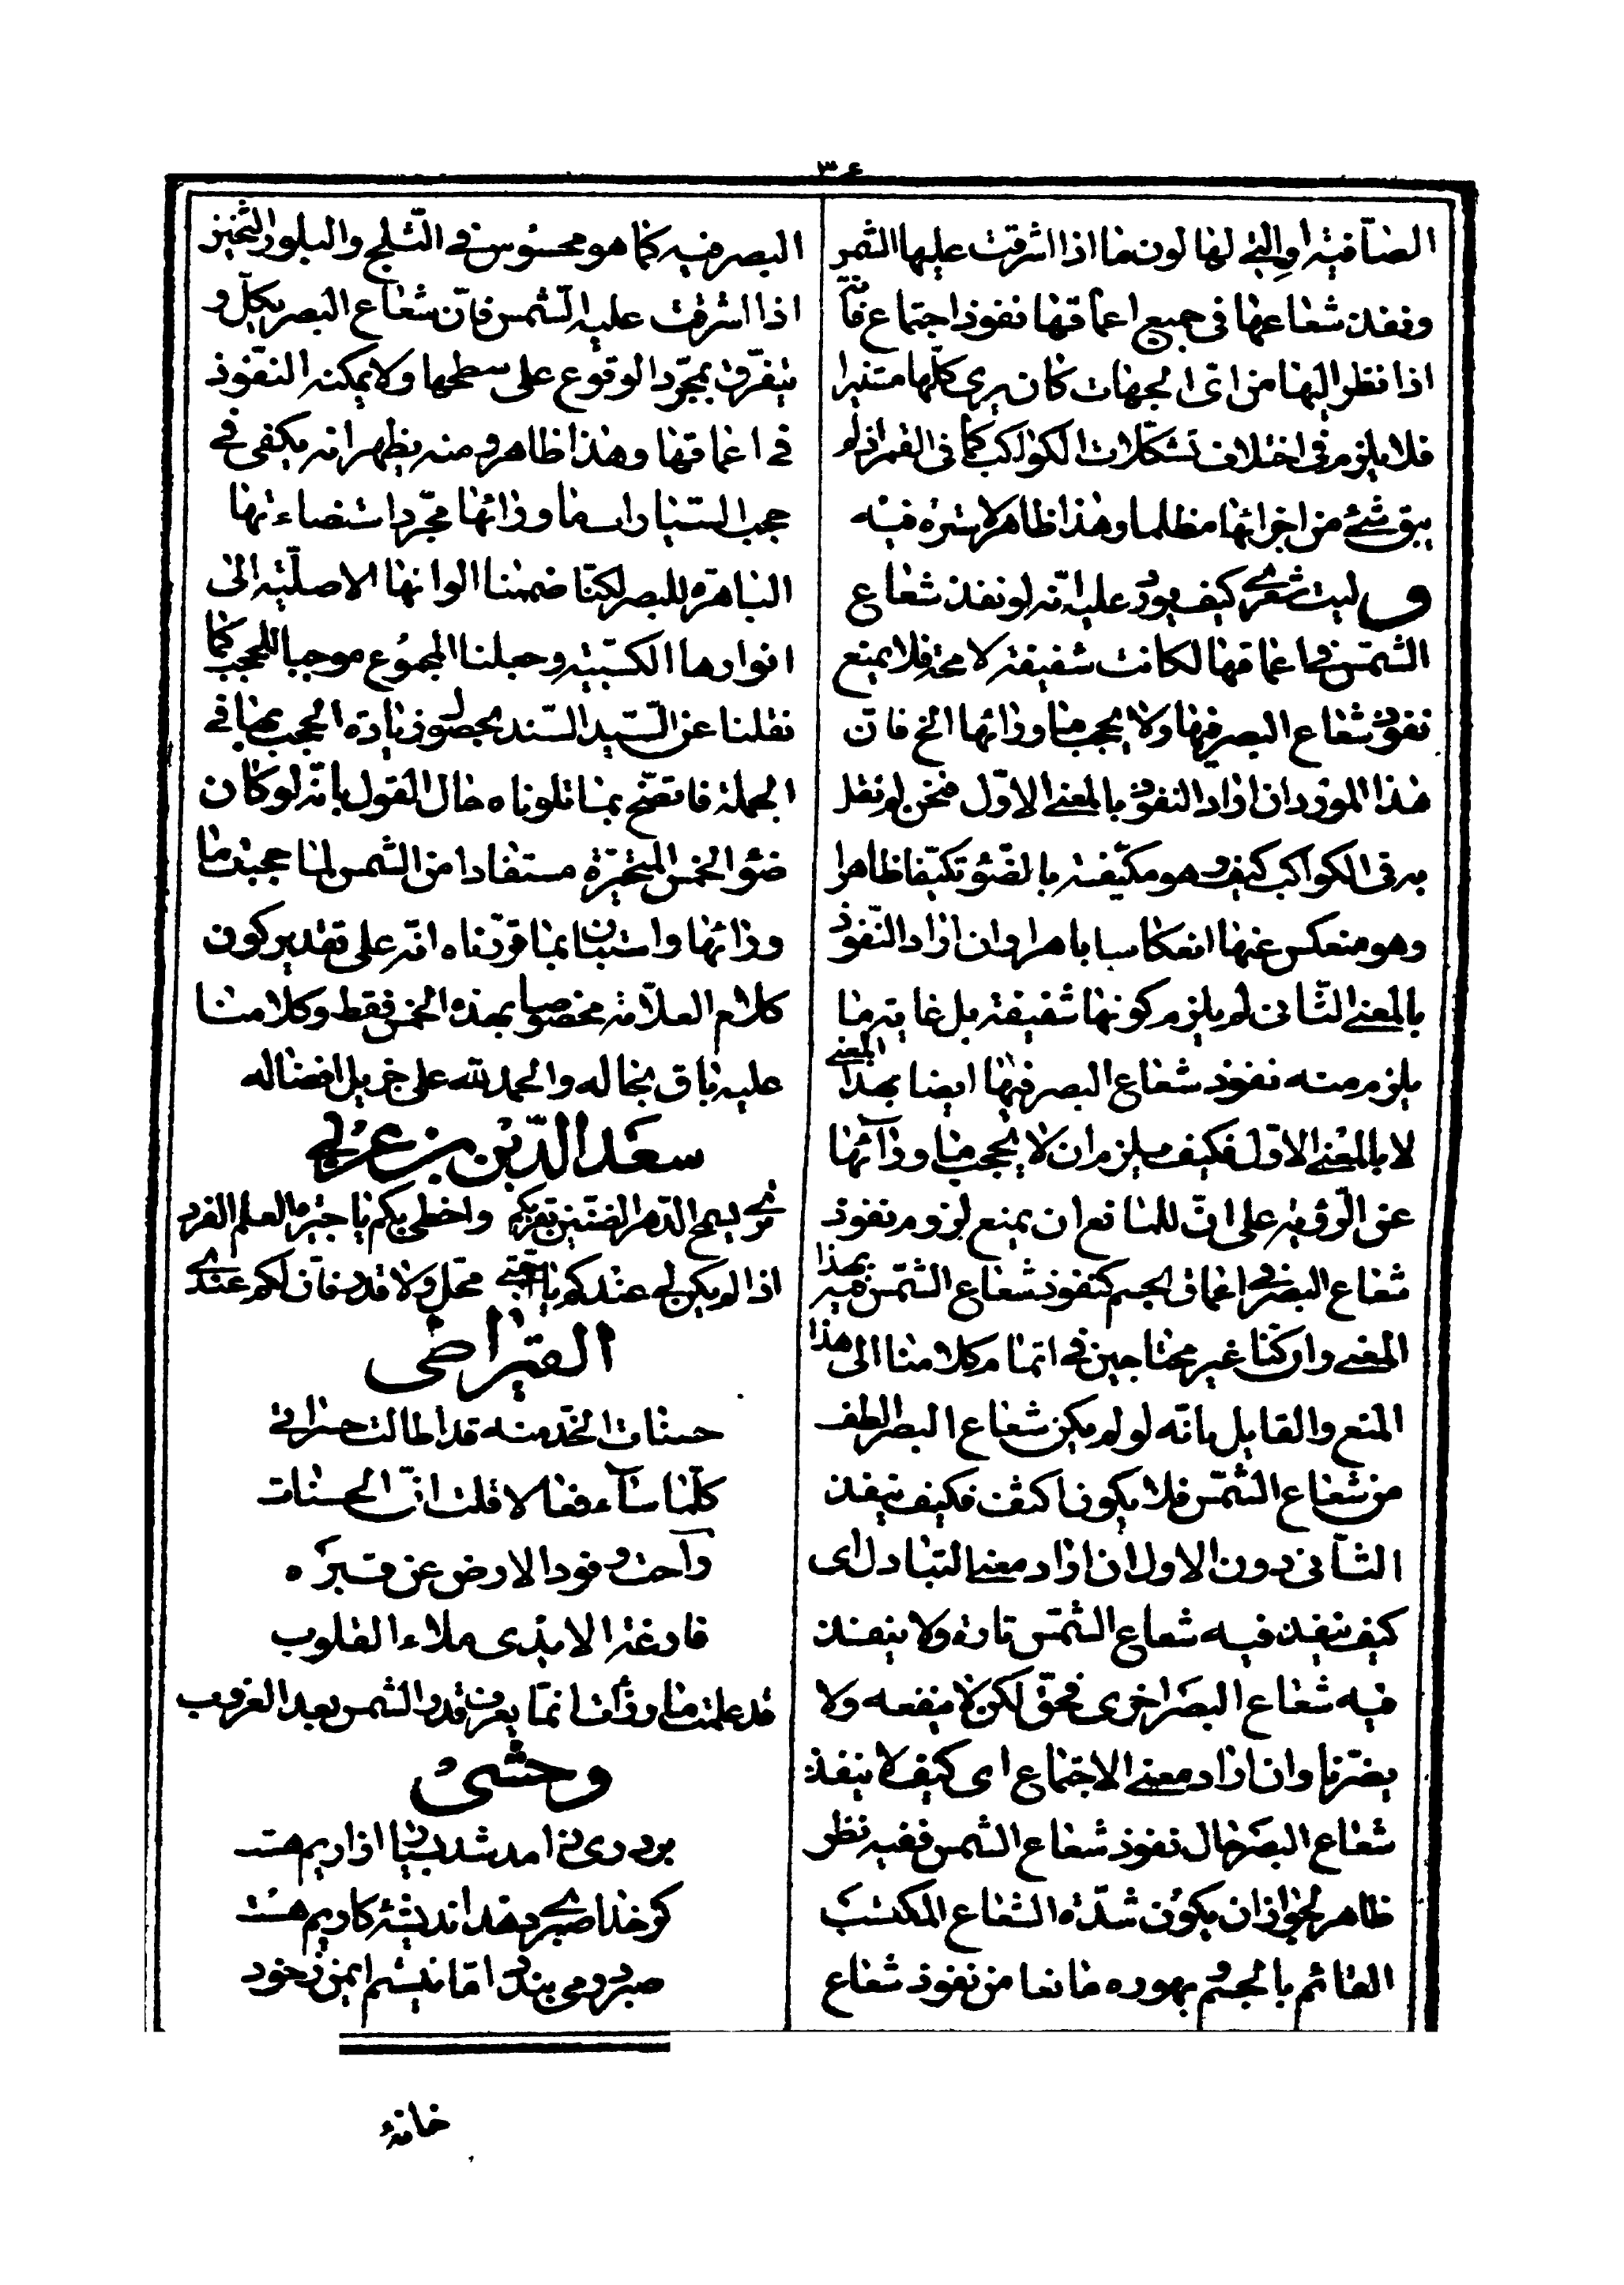 ٣٤
الصافية او التي لها لون ما اذا اشرقت عليها الشمس
ونفذ شعاعها في جميع اعماقها نفوذ اجتماع فانه
اذا نظر اليها من اى الجهات كان يرى كلها مستنيرا
فلا يلزم في اختلاف تشكلات الكواكب كما في القمر اذ لو
يبق شئ من اجزائها مظلما وهذا ظاهر لا سترة فيه
وليت شعرى كيف يورد عليه انه لو نفذ شعاع
الشمس في اعماقها لكانت شفيفة لا محة فلا يمنع
نفوذ شعاع البصر فيها ولا يحجب ما ورائها الخ فان
هذا المورد ان اراد النفوذ بالمعنى الاول فنحن لم نقل
به في الكواكب كيف وهو مكيفة بالضوء تكيفا ظاهرا
وهو منعكس عنها انعكاسا باهرا وان اراد النفوذ
بالمعنى الثانى لم يلزم كونها شفيفة بل غاية ما
يلزم منه نفوذ شعاع البصر فيها ايضا بهذا المعنى
لا بالمعنى الاول فكيف يلزم ان لا يحجب ما ورآئها
عن الرؤية على ان للمانع ان يمنع لزوم نفوذ
شعاع البصر في اعماق الجسم كنفوذ شعاع الشمس فيه بهذا
المعنى وان كنا غير محتاجين في اتمام كلامنا الى هذا
المنع والقايل بانه لو لم يكن شعاع البصر الطف
من شعاع الشمس فلا يكون اكثف فكيف ينفذ
الثانى دون الاول ان اراد معنى التبادل اى
كيف ينفذ فيه شعاع الشمس تارة ولا ينفذ
فيه شعاع البصر اخرى فحق لكن لا ينفعه ولا
يضرنا وان اراد معنى الاجتماع اى كيف لا ينفذ
شعاع البصر حال نفوذ شعاع الشمس ففيه نظر
ظاهر لجواز ان يكون شدة الشعاع المكتسب
القائم بالجرم بهوره مانعا من نفوذ شعاع
البصر فيه كما هو محسوس في الثلج والبلور الثخين
اذا اشرقت عليه الشمس فان شعاع البصر يكل و
يتفرق بمجرد الوقوع على سطحها ولا يمكنه النفوذ
في اعماقها وهذا ظاهر ومنه يظهر انه يكفى في
حجب الستيارات ما ورائها مجرد استضاءتها
الباهرة للبصر لكنا ضممنا الوانها الاصلية الى
انوارها الكسبية وجعلنا المجموع موجبا للحجب كما
نقلنا عن السيد السند لحصول زيادة الحجب بهما في
الجملة فاتضح بما تلوناه حال القول بانه لو كان
ضوء الخمس المتحيرة مستفادا من الشمس لما حجبت ما
ورائها واستبان بما قررناه انه على تقدير كون
كلام العلامة مخصوصا بهذه الخمس فقط وكلامنا
عليه باق بحاله والحمد لله على جزيل افضاله
سعد الدين بن عربى
متى يسمح الدهر الضنين بقربكم واحظى بكم يا جيرة العلم الفرد
اذا لم يكن لي عندكم يا احبتي محل ولا قدر فان لكم عندى
القيراطى
حسنات الخد منه قد اطالت حسراتى
كلما سآء فعالا قلت ان الحسنات
وآحث وفود الارض عن قبره
فارغة الايدى ملاء القلوب
قد علمت ما رزئت انما يعرف قدر الشمس بعد الغروب
وحشى
بردرى ز امد شد بسيار ازاريم هست
كر خدا صبرى دهد انديشۀ كاريم هست
صبر در مى بندد اما نيستم ايمن ز خود
خانۀ